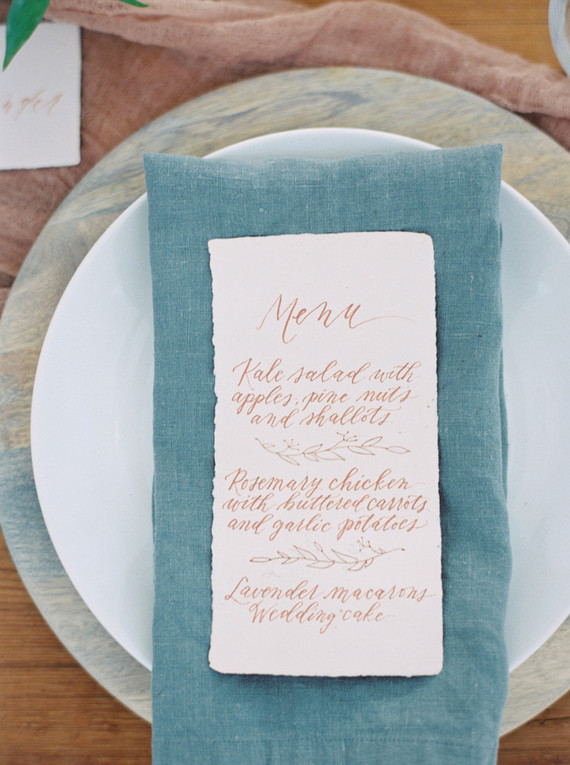 Menu
Kale salad with
apples, pine nuts
and shallots
Rosemary chicken
with buttered carrots
and garlic potatoes
Lavender macarons
Wedding cake